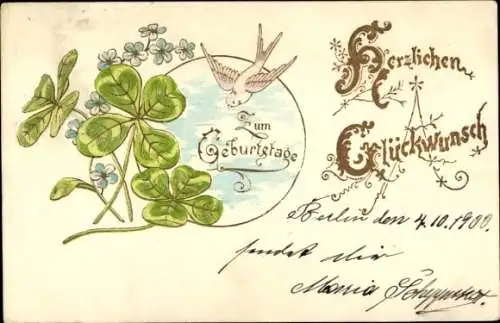 Herzlichen
Glückwunsch
Zum
Geburtstage
Berlin den 4.10.1900.
sendet dir
Maria